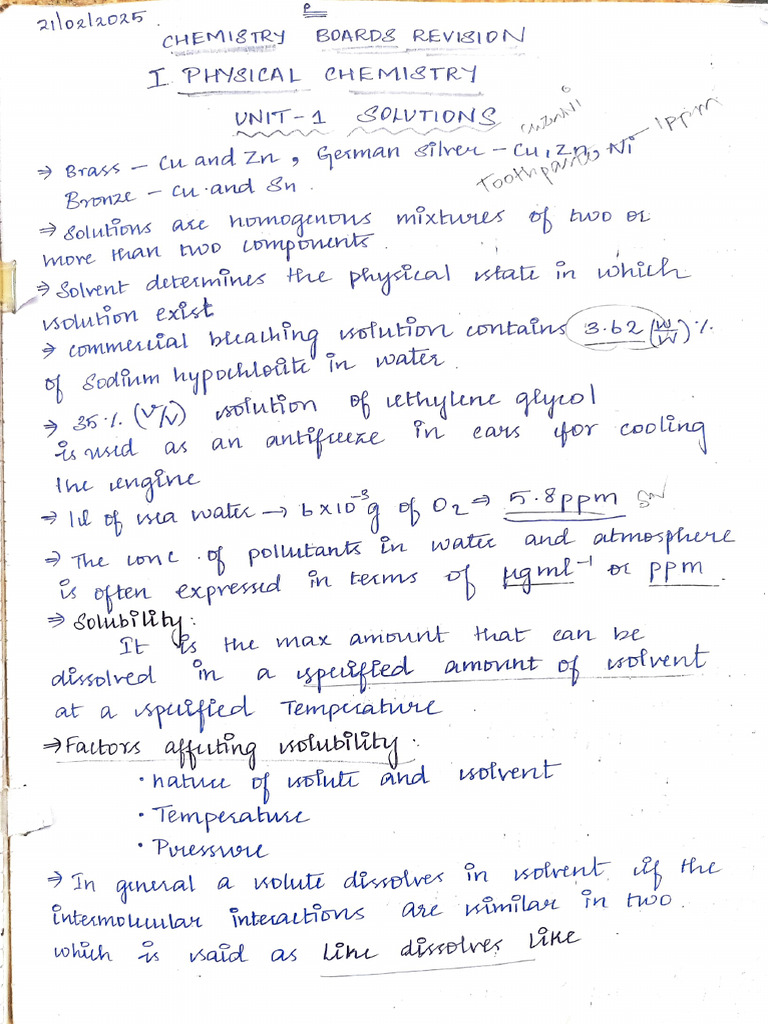 21/02/2025
CHEMISTRY BOARDS REVISION
I PHYSICAL CHEMISTRY
UNIT-1 SOLUTIONS
CuZnNi
⇒ Brass – Cu and Zn, German Silver – Cu, Zn, Ni
Toothpaste – 1ppm
Bronze – Cu and Sn.
⇒ Solutions are homogenous mixtures of two or
more than two components.
⇒ Solvent determines the physical state in which
solution exist
⇒ commercial bleaching solution contains 3.62 (W/W) %
of Sodium hypochlorite in water.
⇒ 35% (V/V) solution of ethylene glycol
is used as an antifreeze in cars for cooling
the engine
⇒ 1l of sea water → 6×10⁻³g of O₂ ⇒ 5.8ppm
⇒ The conc. of pollutants in water and atmosphere
is often expressed in terms of μgml⁻¹ or ppm.
⇒ Solubility:
It is the max amount that can be
dissolved in a specified amount of solvent
at a specified Temperature
⇒ Factors affecting solubility:
• nature of solute and solvent
• Temperature
• Pressure
⇒ In general a solute dissolves in solvent if the
intermolecular interactions are similar in two.
which is said as like dissolves like